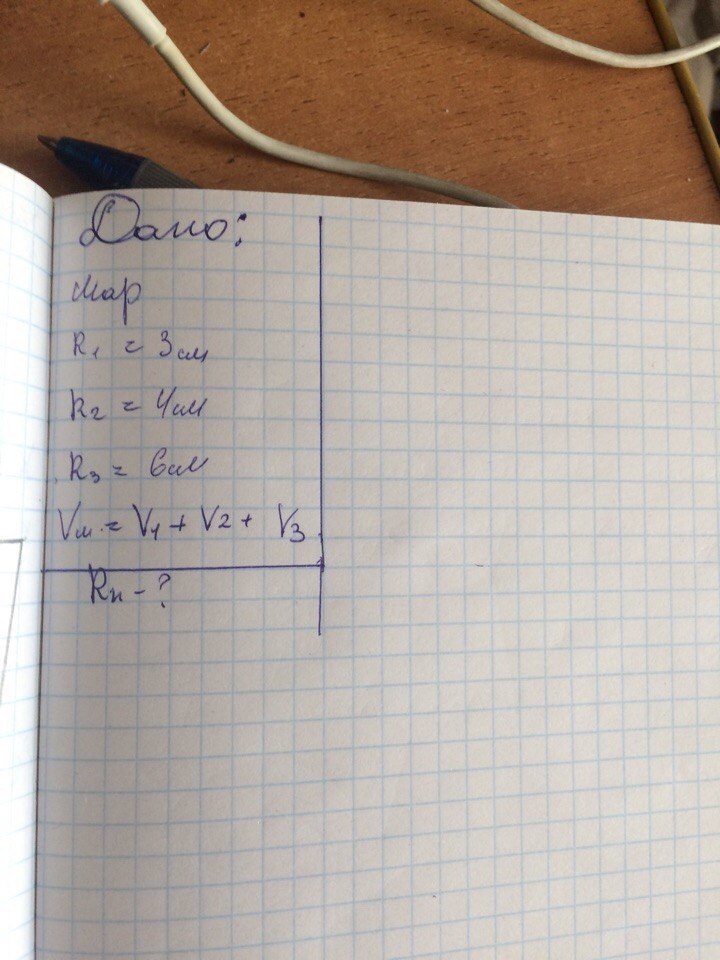 Дано:
Шар
R₁ = 3см
R₂ = 4см
R₃ = 6см
Vм = V₁ + V2 + V₃
Rн - ?